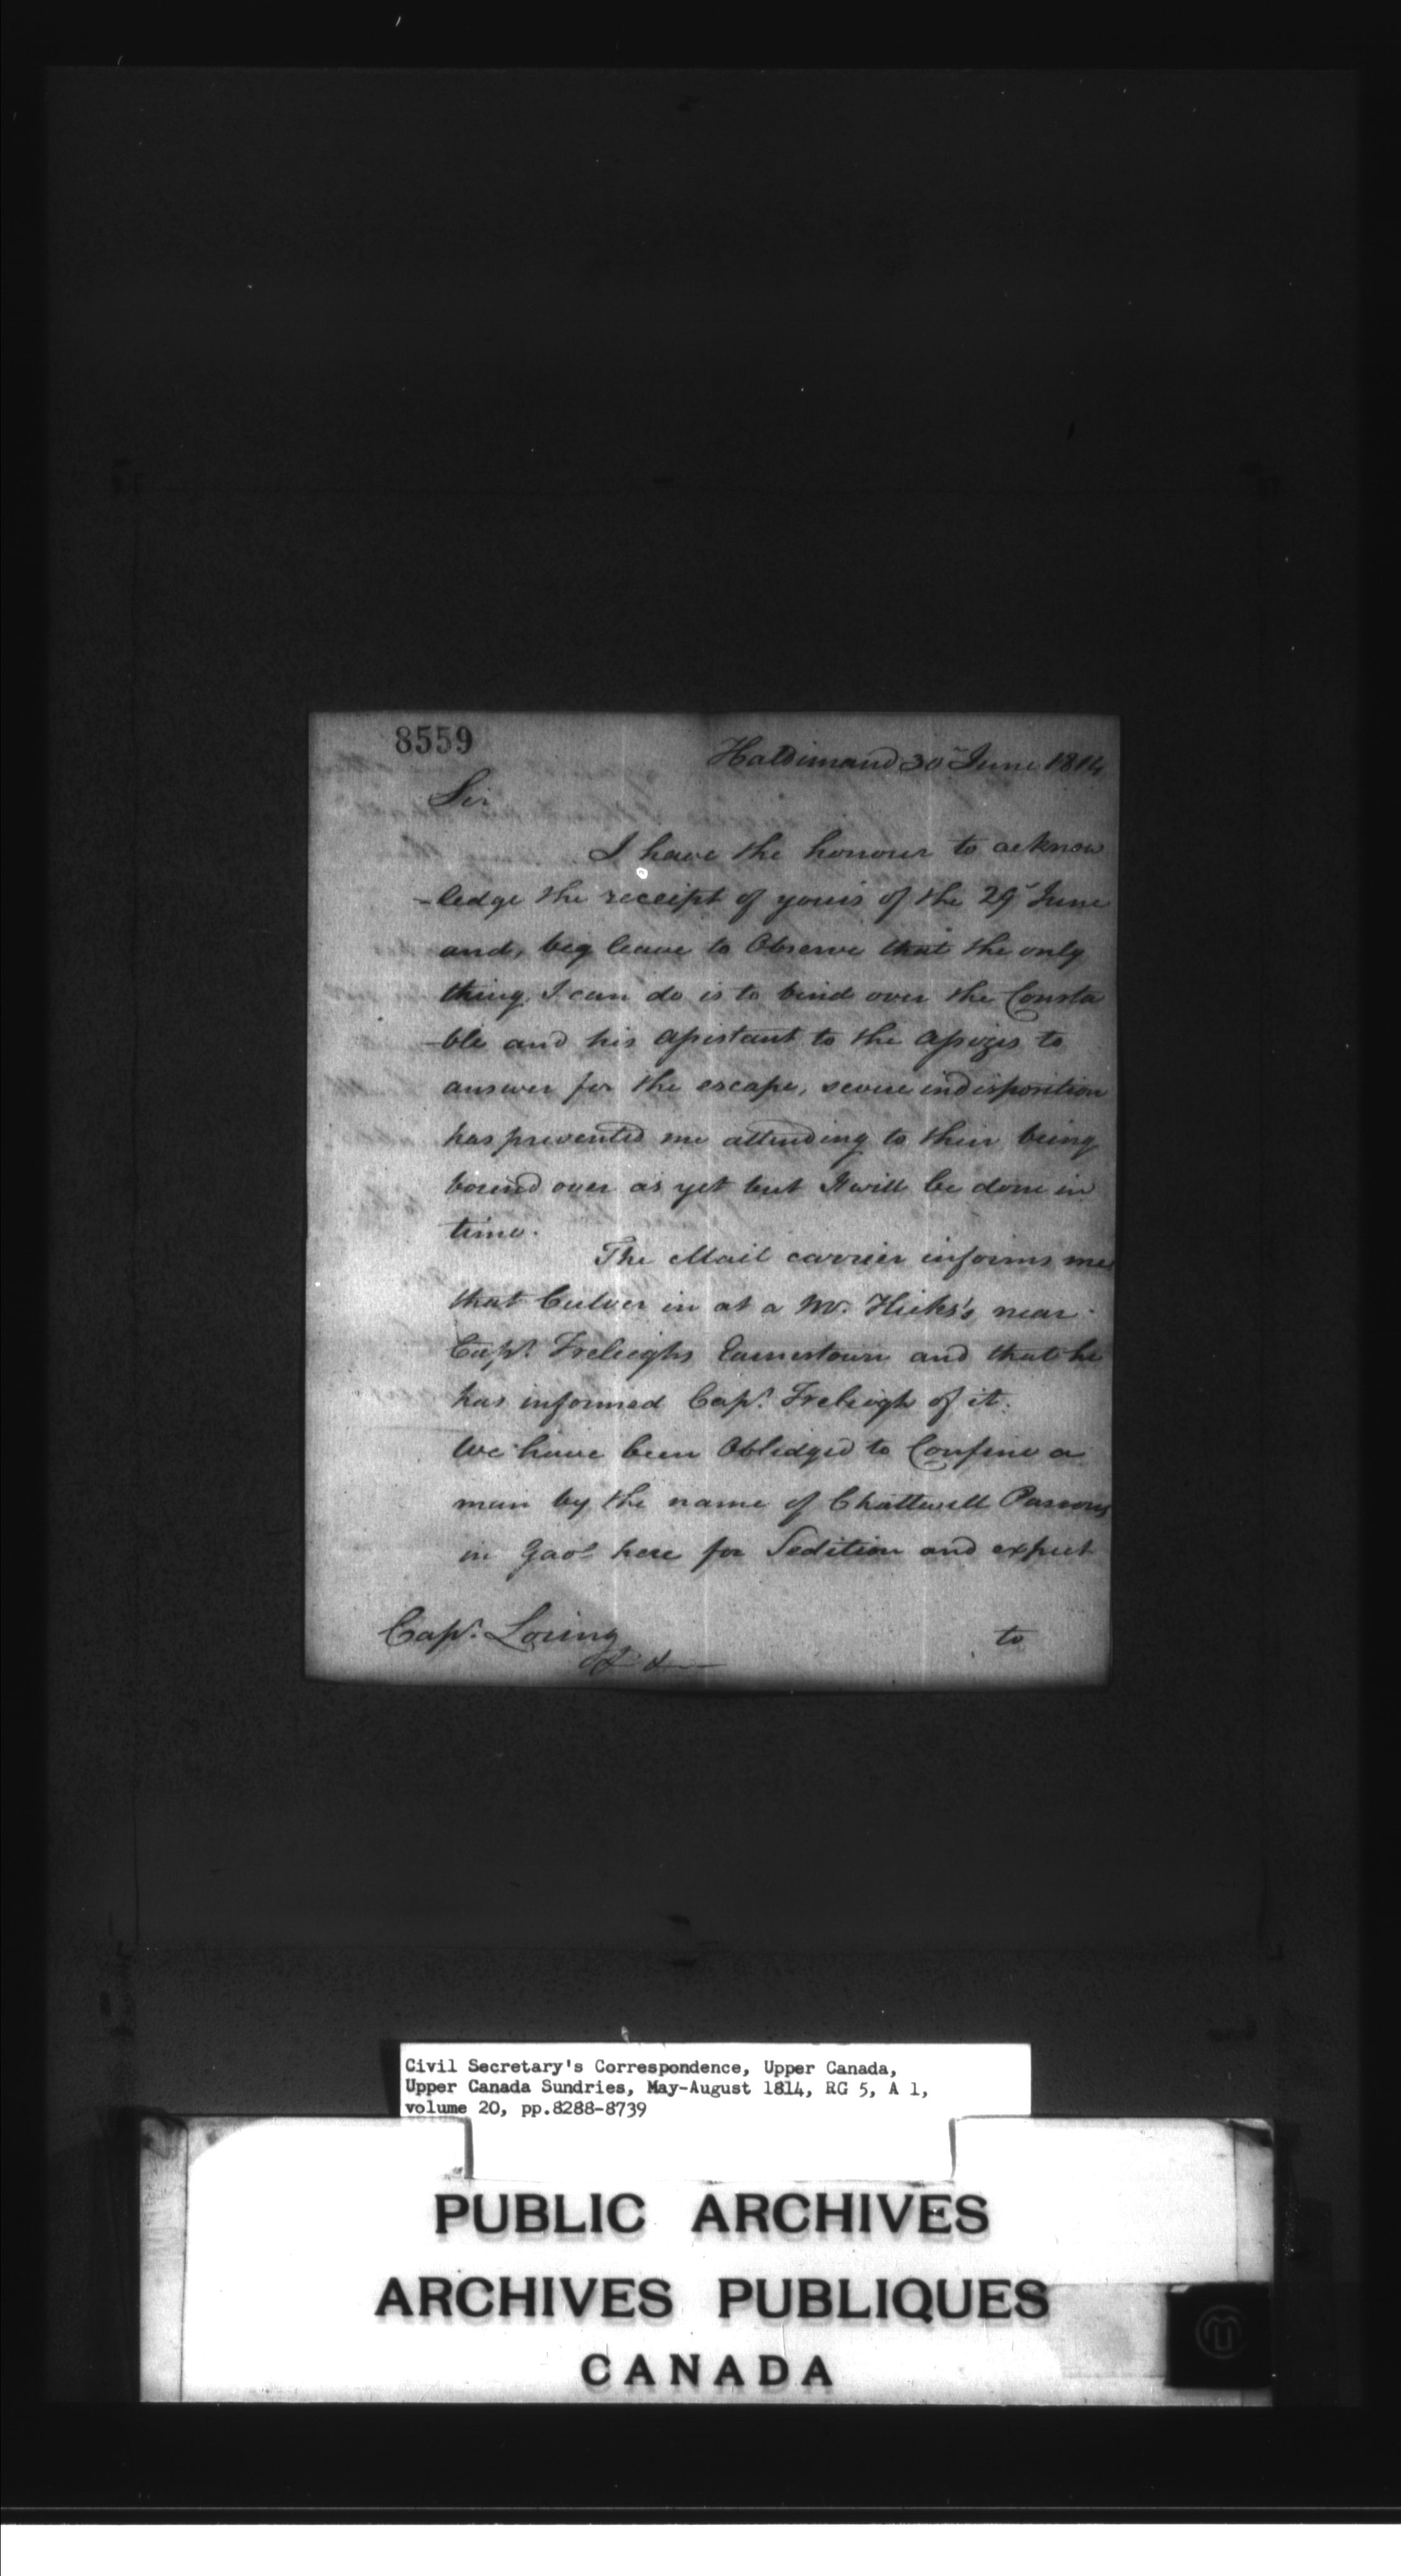 8559
Haldimand 30th June 1814
Sir
I have the honour to acknow
-ledge the receipt of yours of the 29th June
and, beg leave to Observe that the only
thing I can do is to bind over the Consta
-ble and his Assistant to the Assizes to
answer for the escape, severe indisposition
has prevented me attending to their being
bound over as yet but It will be done in
time.
The Mail carrier informs me
that Culver in at a Mr. Hicks's near
Capt. Freleighs Earnestown and that he
has informed Capt. Freleigh of it.
We have been Oblidged to Confine a
man by the name of Chattwell Parsons
in Gaol here for Sedition and expect
Capt. Loring
& &
to
Civil Secretary's Correspondence, Upper Canada,
Upper Canada Sundries, May-August 1814, RG 5, A 1,
volume 20, pp.8288-8739
PUBLIC ARCHIVES
ARCHIVES PUBLIQUES
CANADA